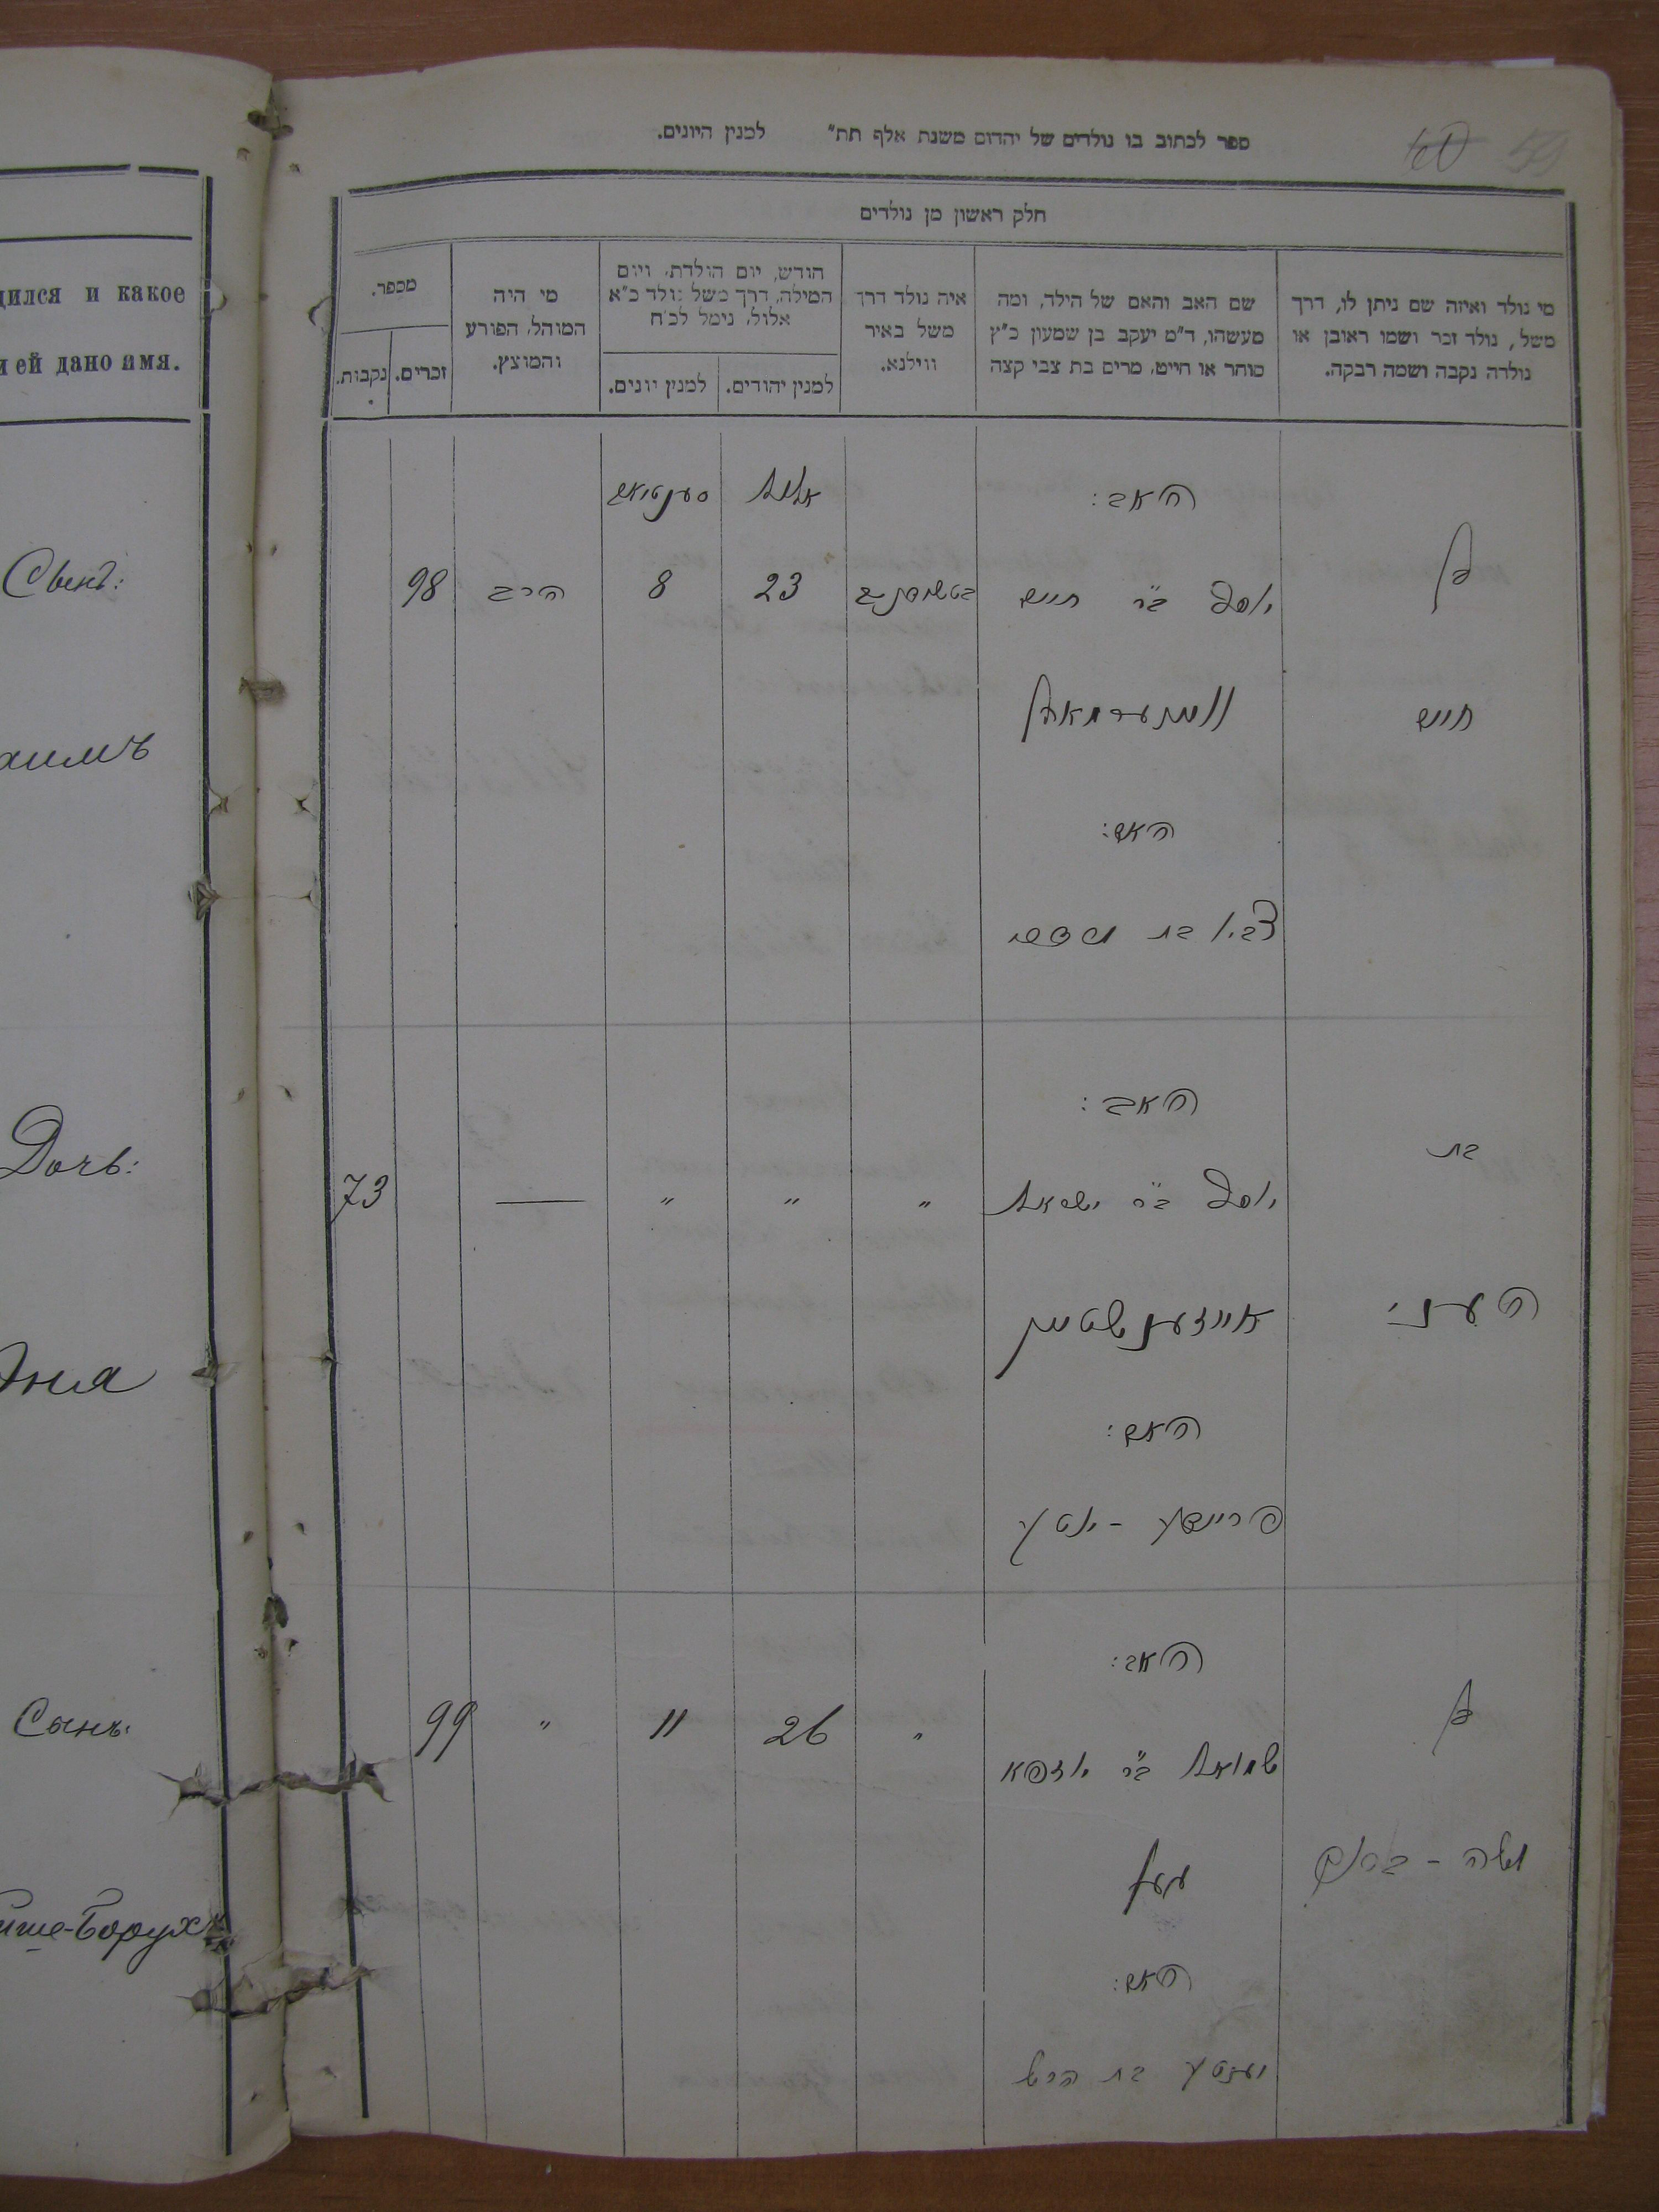 дился и какое
и ей дано имя.
Сынъ:
аимъ
Дочь:
Эня
Сынъ:
Борухъ
59
60
ספר לכתוב בו נולדים של יהדום משנת אלף תת״ למנין היונים.
חלק ראשון מן נולדים
מי נולד ואיזה שם ניתן לו, דרך
משל, נולד זכר ושמו ראובן או
נולדה נקבה ושמה רבקה.
שם האב והאם של הילד, ומה
מעשהו, ד״מ יעקב בן שמעון כ״ץ
סוחר או חייט, מרים בת צבי קצה
איה נולד דרך
משל באיר
ווילנא.
חודש, יום הולדת, ויום
המילה, דרך משל נולד כ״א
אלול, נימל לכ״ח
למנין יהודים.
למנין יונים.
מי היה
המוהל, הפורע
והמוצץ.
מספר.
זכרים.
נקבות.
האב:
אלול
בן
יוסף ב״ר חיים
23
8
הרב
98
חיים
האם:
צביא בת
האב:
בת
יוסף ב״ר ישראל
״
״
״
73
העני
אייזענשטיין
האם:
האב:
בן
שמואל ב״ר
״
26
11
״
99
משה - ברוך
האם:
בת הירש